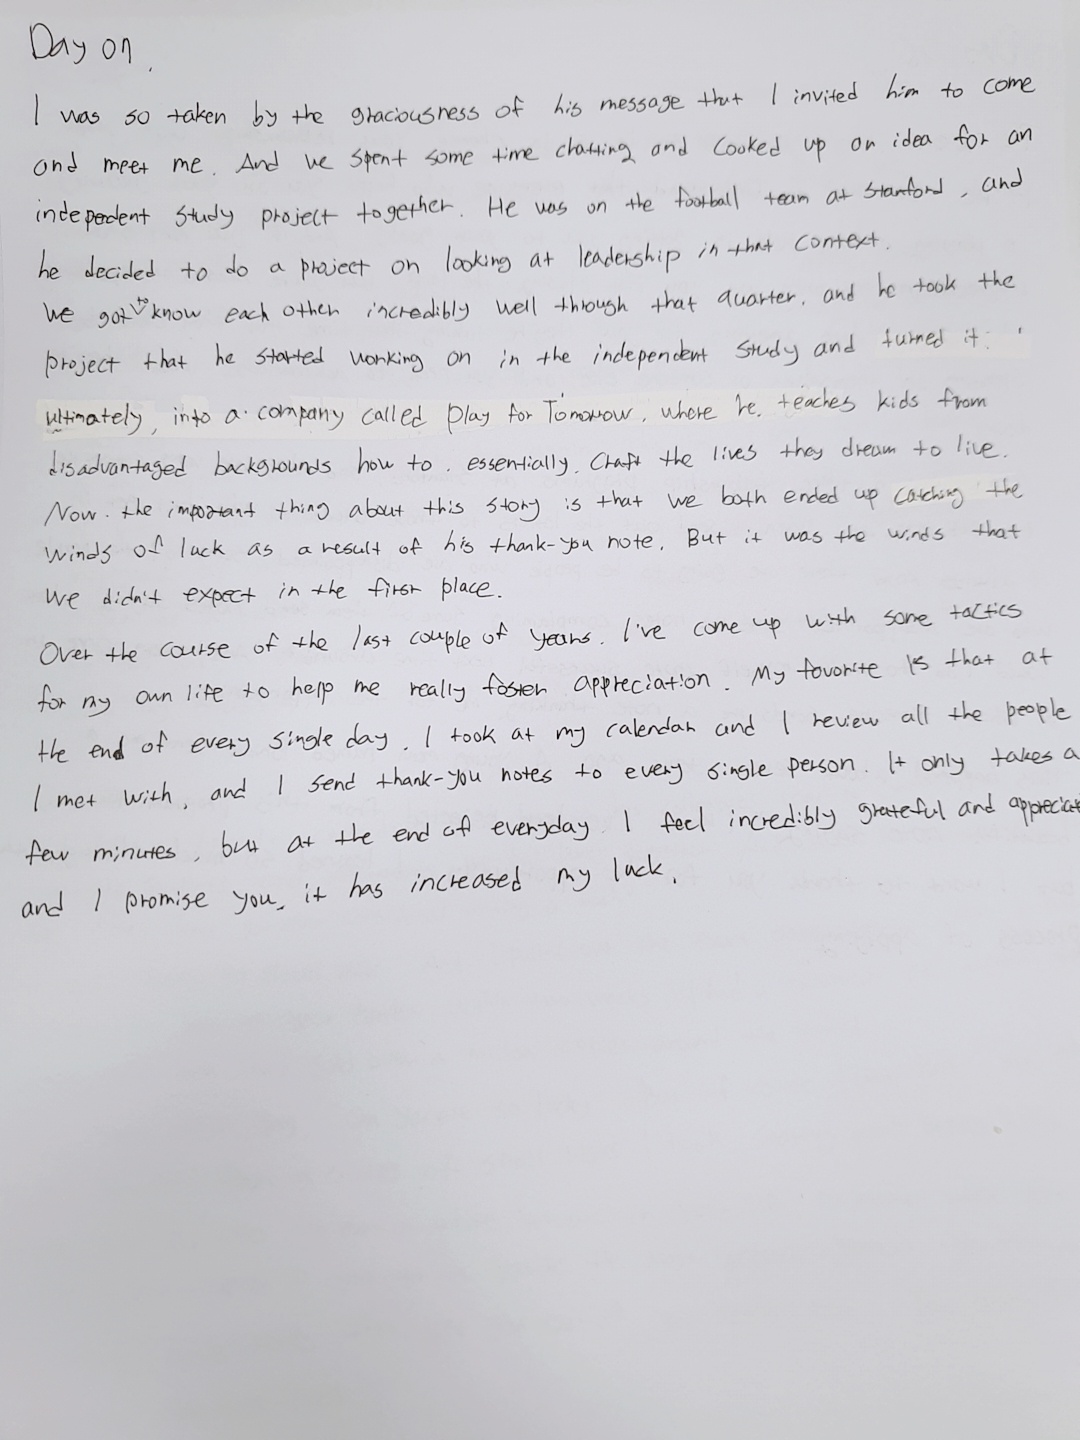 Day 07
I was so taken by the graciousness of his message that I invited him to come
and meet me. And we spent some time chatting and cooked up an idea for an
indepedent study project together. He was on the football team at Stanford, and
he decided to do a project on looking at leadership in that context.
We got to know each other incredibly well through that quarter, and he took the
project that he started working on in the independent study and turned it,
ultimately, into a company called Play for Tomorrow, where he teaches kids from
disadvantaged backgrounds how to, essentially, craft the lives they dream to live.
Now, the important thing about this story is that we both ended up catching the
winds of luck as a result of his thank-you note. But it was the winds that
we didn't expect in the first place.
Over the course of the last couple of years, I've come up with some tactics
for my own life to help me really foster appreciation. My favorite is that at
the end of every single day, I took at my calendar and I review all the people
I met with, and I send thank-you notes to every single person. It only takes a
few minutes, but at the end of everyday I feel incredibly grateful and appreciat
and I promise you, it has increased my luck.